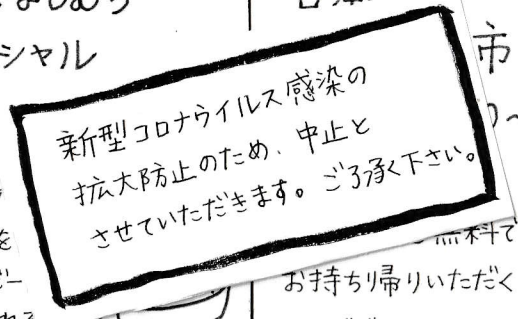 シャル
市
新型コロナウイルス感染の
拡大防止のため、中止と
させていただきます。ご了承く下さい。
無料で
お持ち帰りいただく